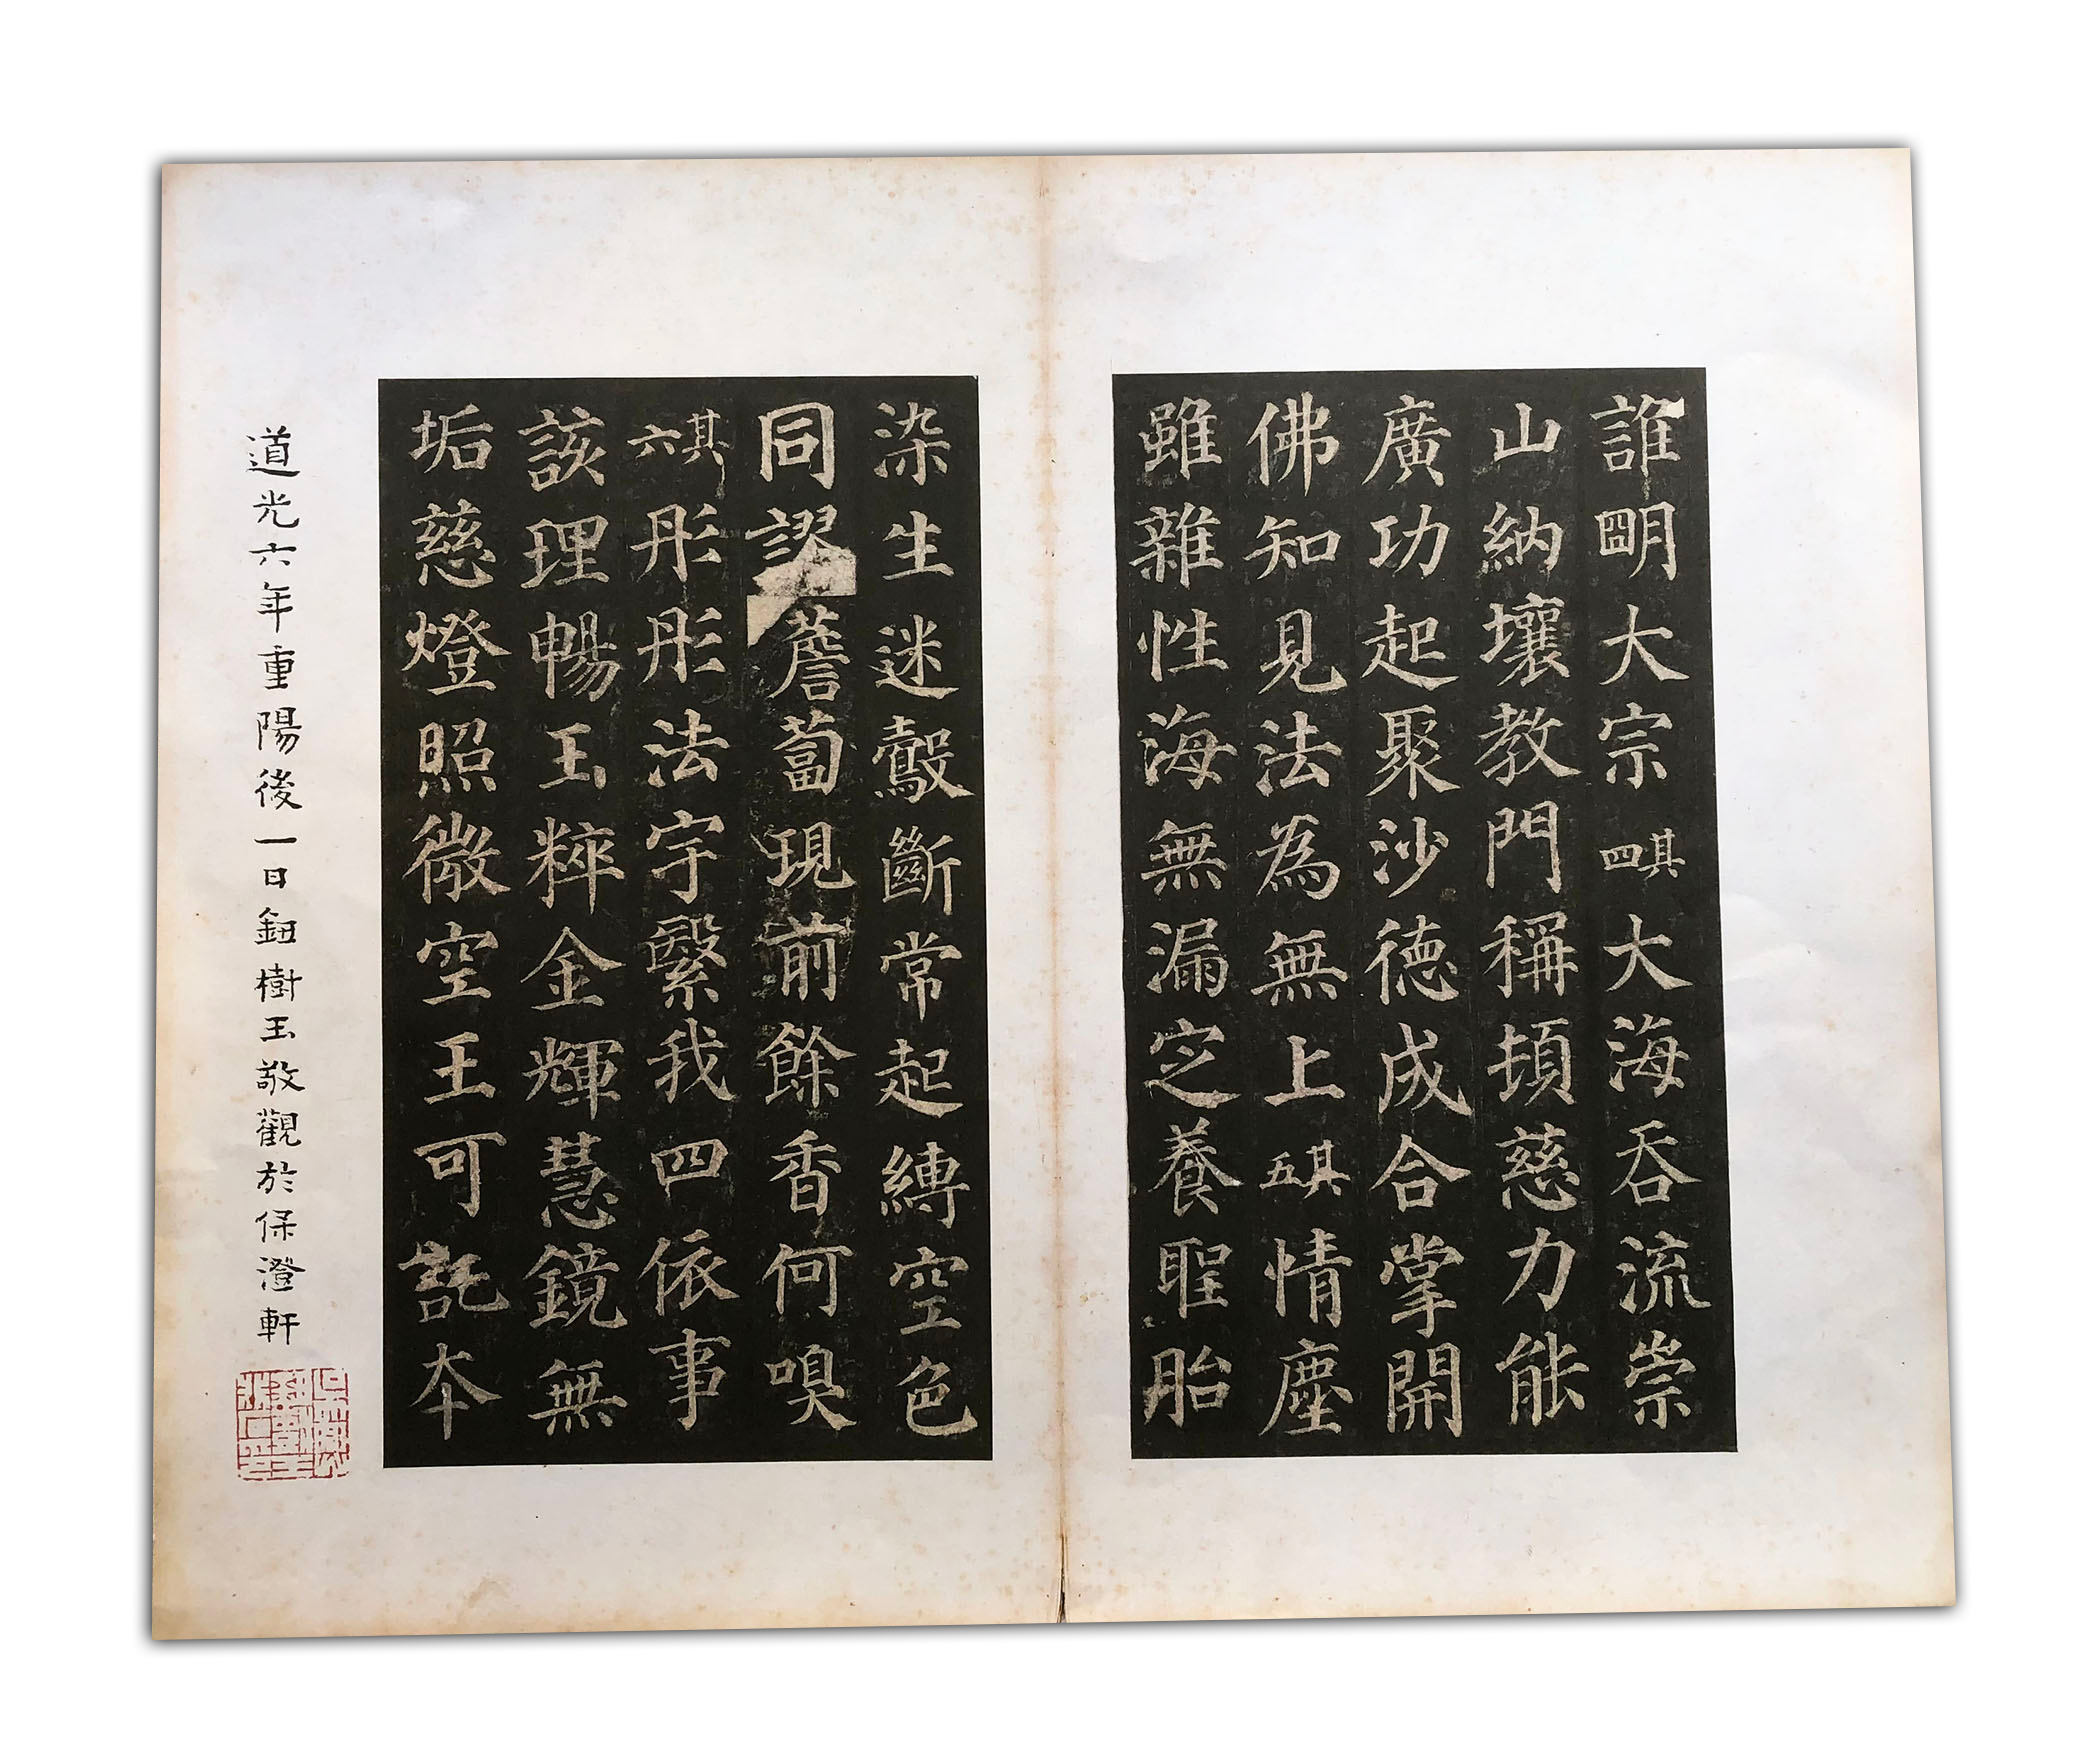 誰明大宗其四大海吞流崇
山納壤教門稱頓慈力能
廣功起聚沙德成合掌開
佛知見法為無上其五情塵
雖雜性海無漏定養聖胎
染生迷鷇斷常起縛空色
同謬薝蔔現前餘香何嗅
其六彤彤法宇繄我四依事
該理暢玉粹金輝慧鏡無
垢慈燈照微空王可託本
道光六年重陽後一日鈕樹玉敬觀於保澄軒